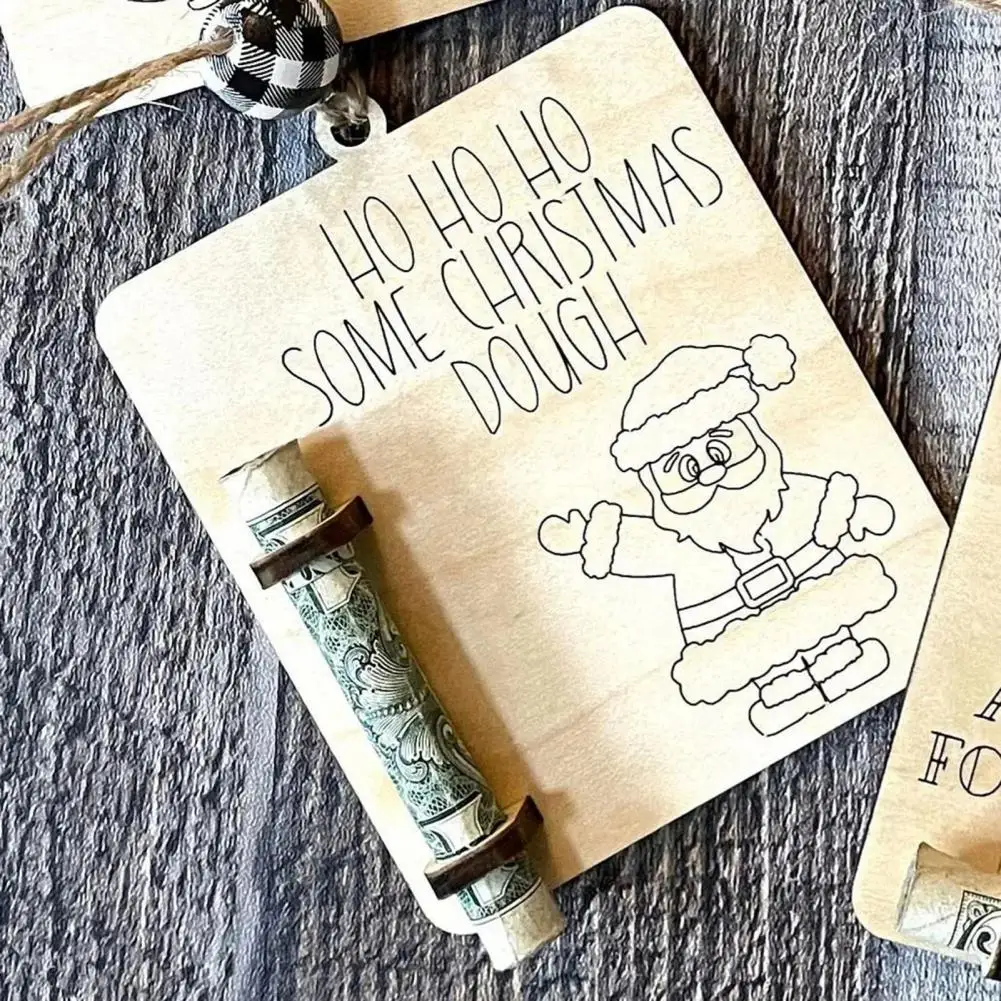 HO HO HO
SOME CHRISTMAS
DOUGH
FO